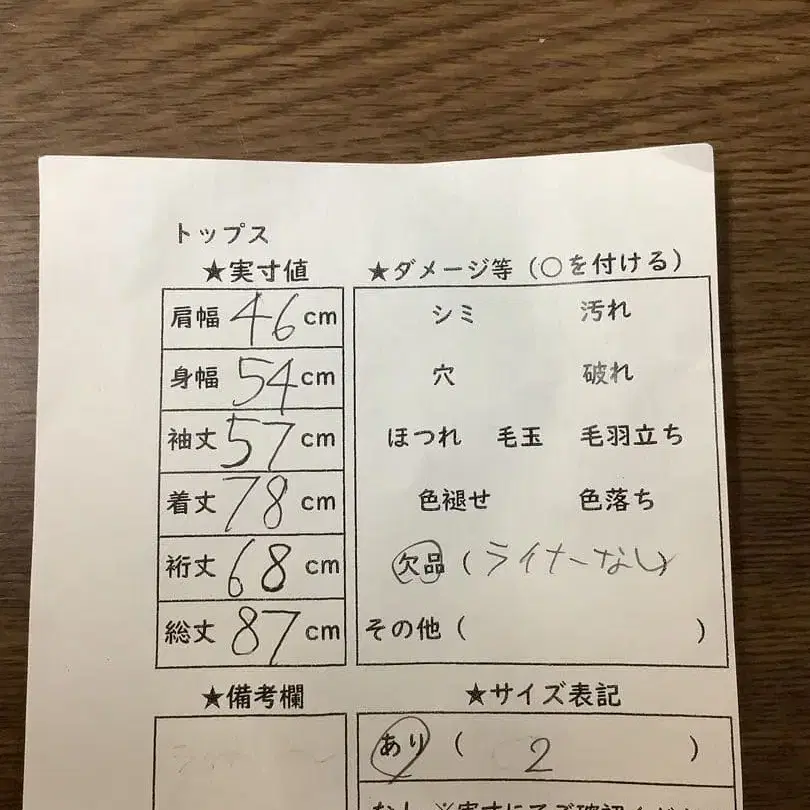 トップス
★実寸値
肩幅 46 cm
身幅 54 cm
袖丈 57 cm
着丈 78 cm
裄丈 68 cm
総丈 87 cm
★ダメージ等（○を付ける）
シミ 汚れ
穴 破れ
ほつれ 毛玉 毛羽立ち
色褪せ 色落ち
欠品（ライナーなし）
その他（ ）
★備考欄
★サイズ表記
あり（ 2 ）
なし ※実寸にてご確認くださ